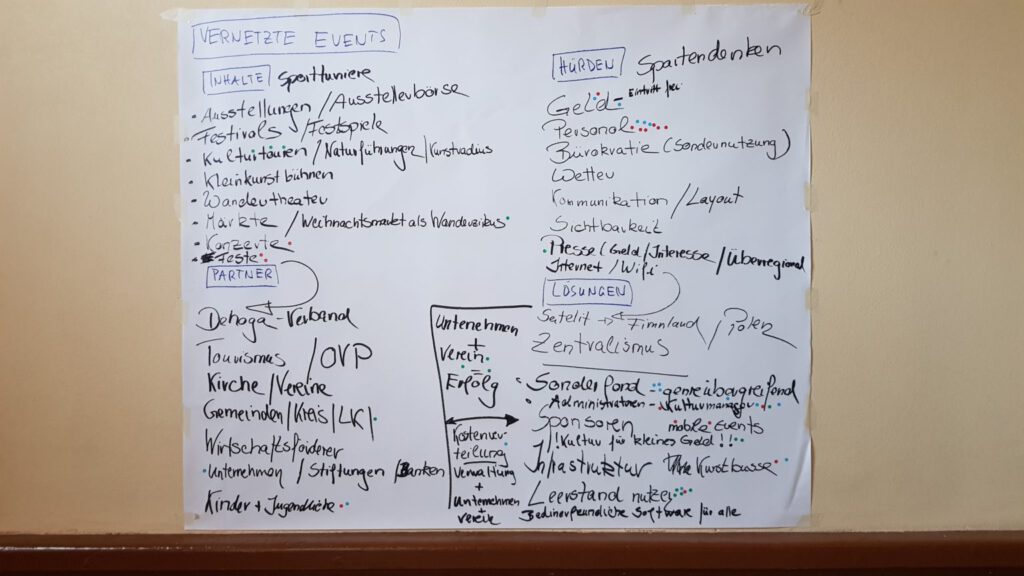 VERNETZTE EVENTS
INHALTE Sporttuniere
• Ausstellungen / Ausstellerbörse
• Festivals / Festspiele
• Kulturtouren / Naturführungen / Kunstradius
• Kleinkunstbühnen
• Wandertheater
• Märkte / Weihnachtsmarkt als Wanderzirkus
• Konzerte
• Feste
PARTNER
Dehoga-Verband
Tourismus / OVP
Kirche / Vereine
Gemeinden / Kreis / LK
Wirtschaftsförderer
Unternehmen / Stiftungen / Banken
Kinder + Jugendliche
Unternehmen
+
Verein
=
Erfolg
Kostenver-
teilung
Verwaltung
+
Unternehmen
+
Verein
HÜRDEN Spartendenken
Geld - Eintritt frei
Personal
Bürokratie (Sondernutzung)
Wetter
Kommunikation / Layout
Sichtbarkeit
Presse (Geld / Interesse / Überregional
Internet / Wifi
LÖSUNGEN
Satelit → Finnland / Polen
Zentralismus
• Sonderfond - genreübergreifend
• Administratoren - Kulturmanager
Sponsoren mobile Events
!!Kultur für kleines Geld!!
Infrastruktur Kunstbusse
Leerstand nutzen
Bedienerfreundliche Software für alle